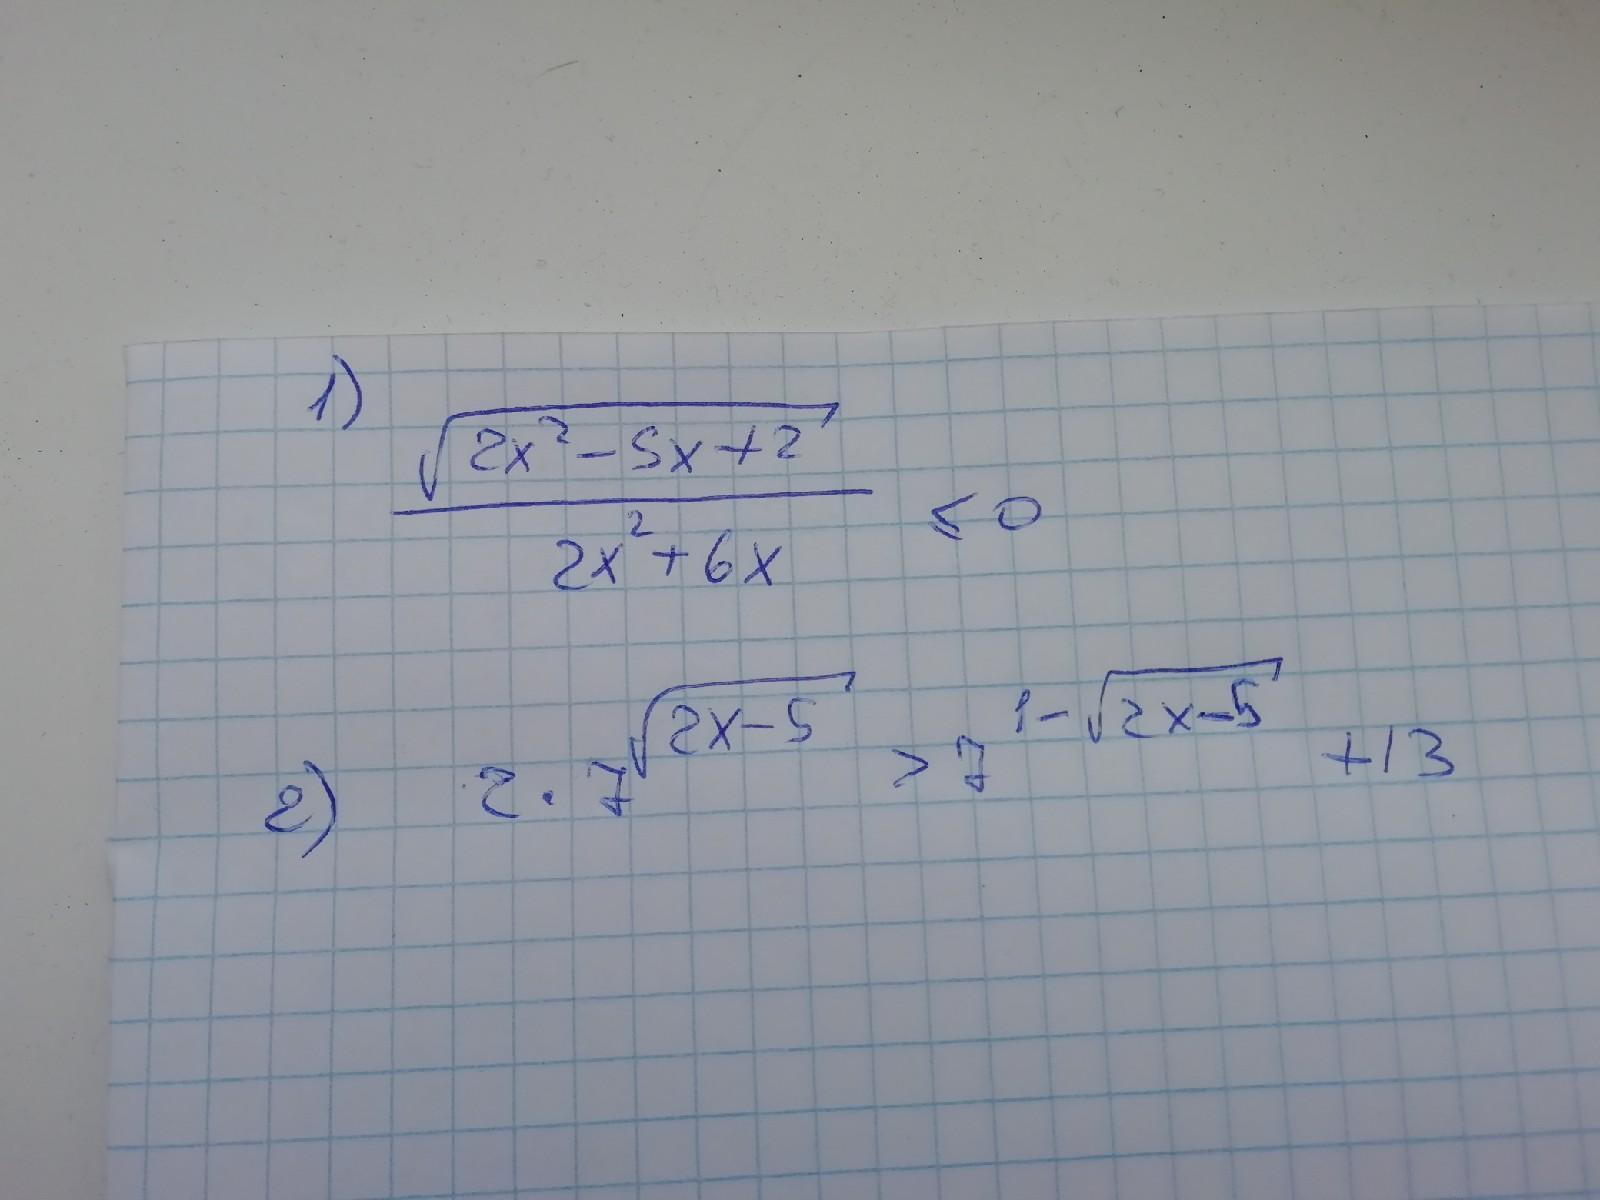 1) √(2x²-5x+2) / (2x²+6x) ≤ 0
2) 2·7^√(2x-5) > 7^(1-√(2x-5)) +13